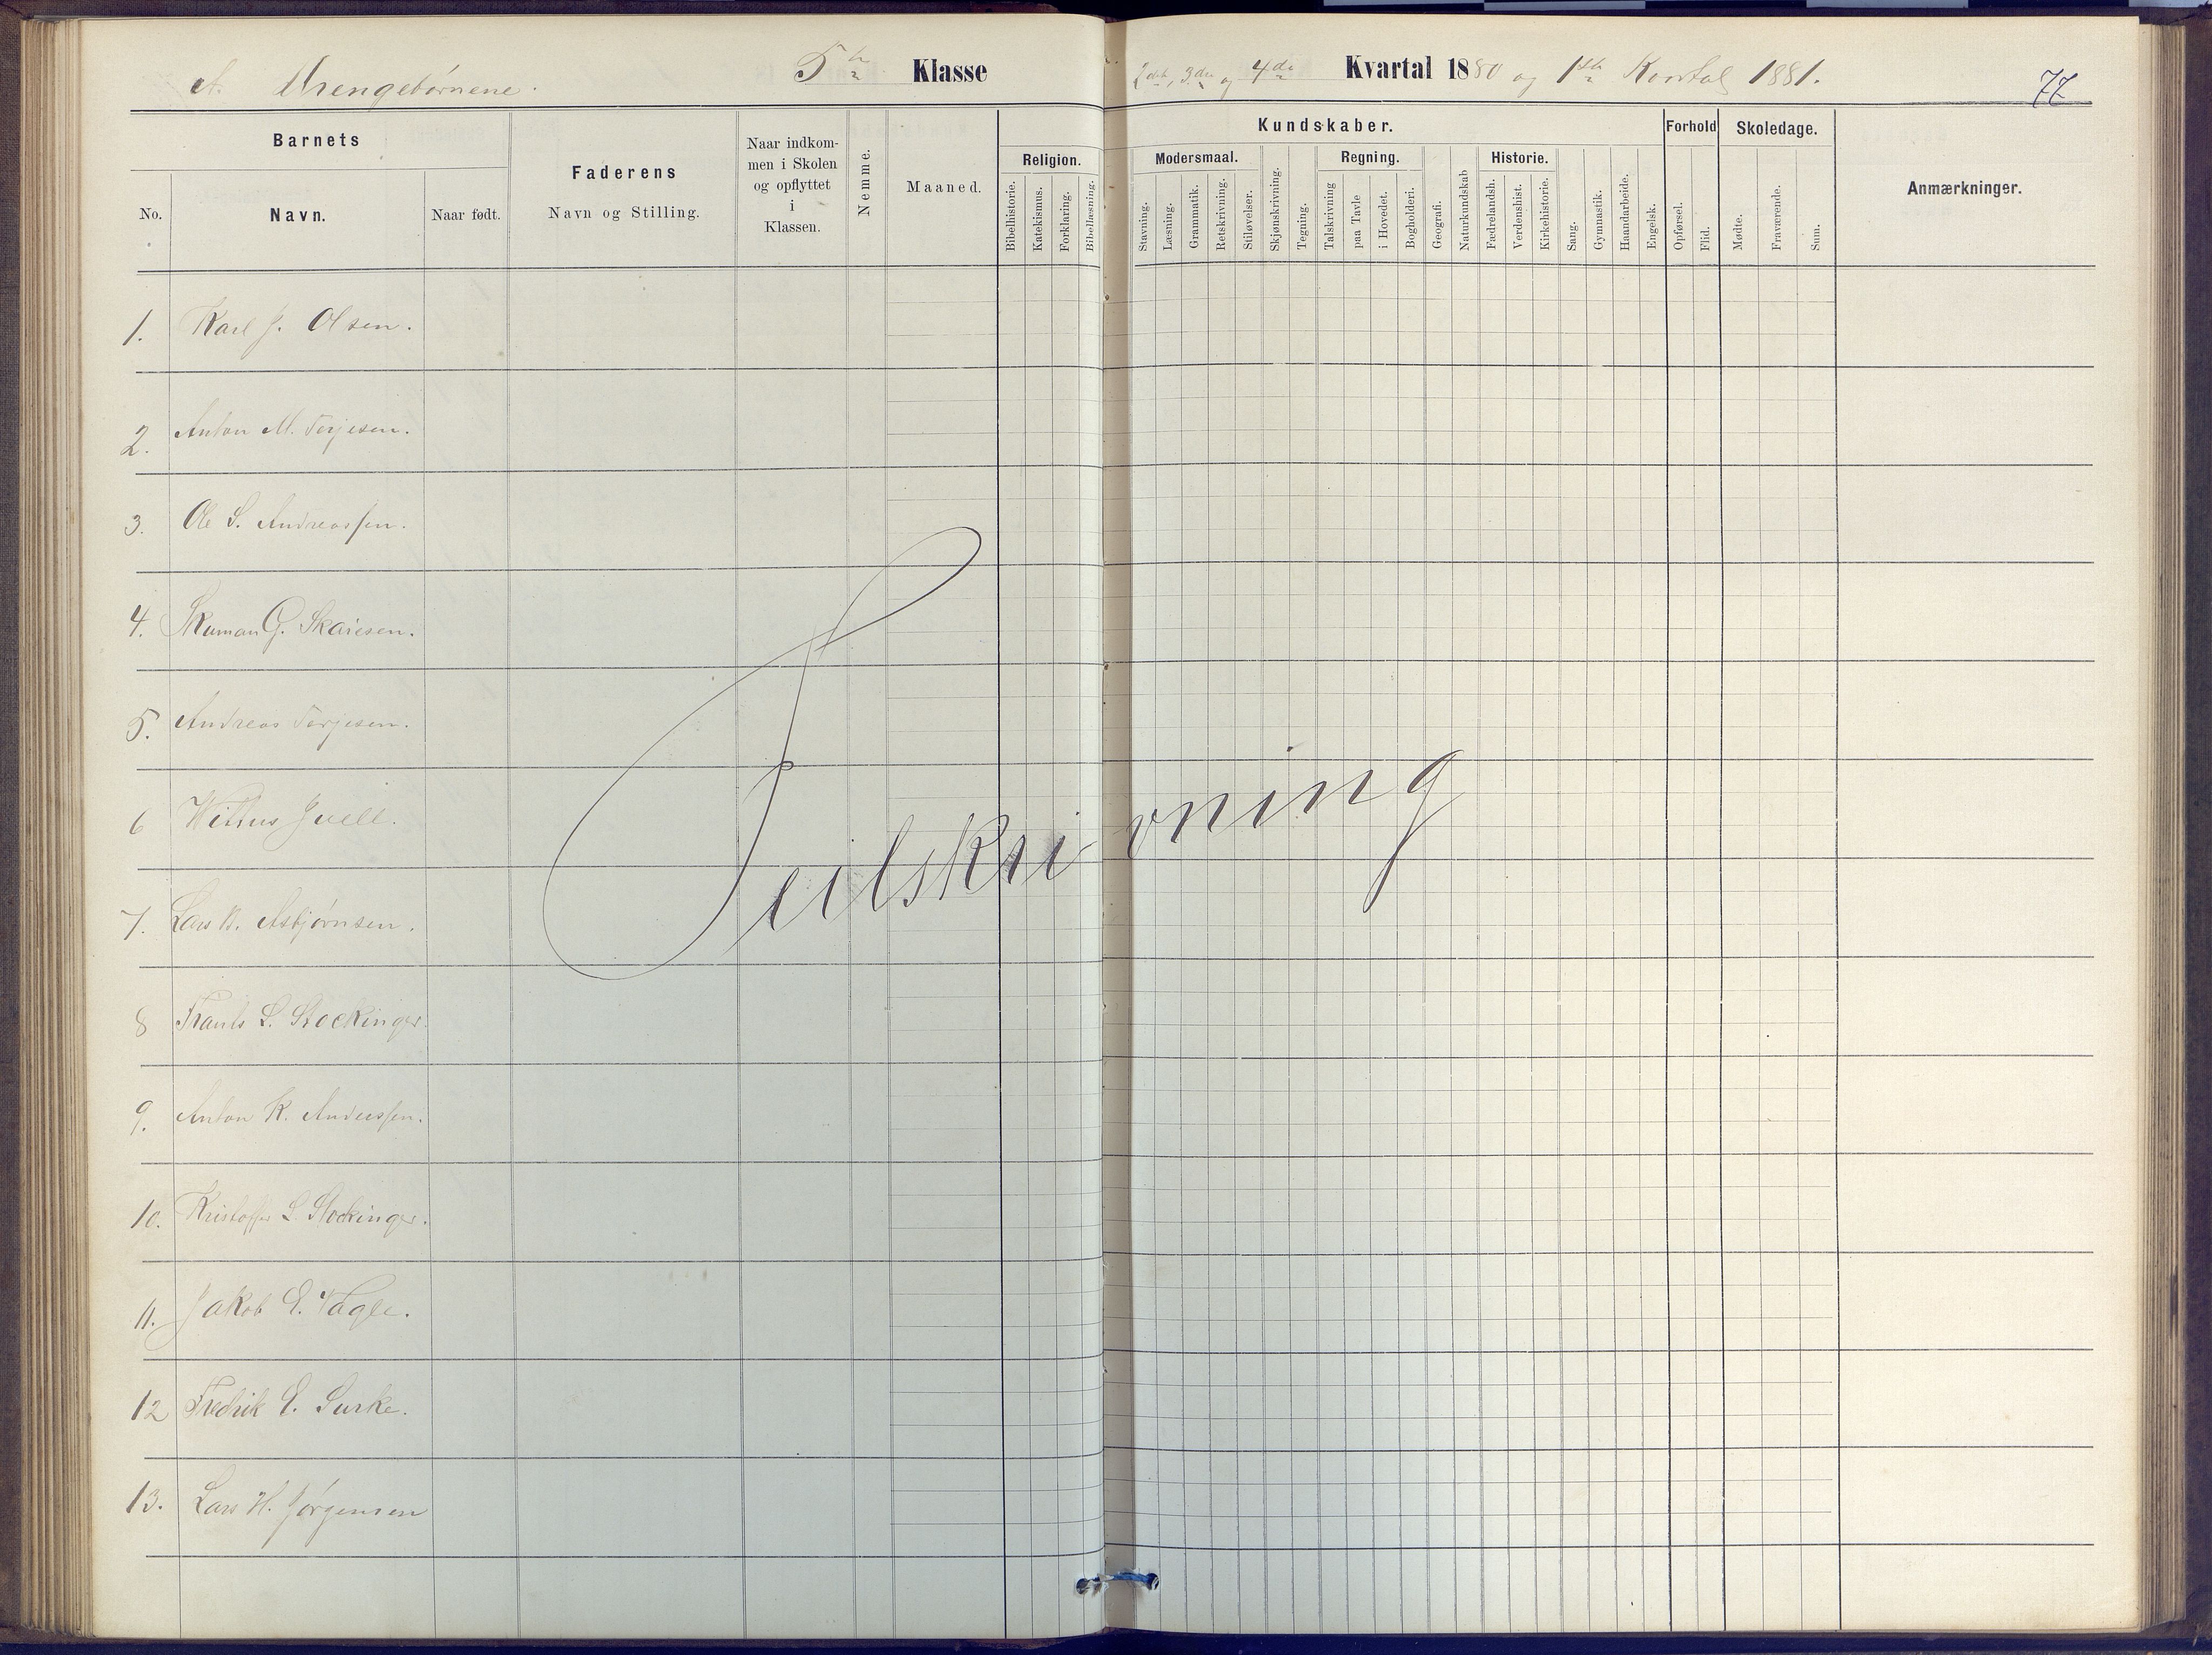 5te Klasse 2det, 3die og 4de Kvartal 1880 og 1ste Kvartal 1881.
A. Drengebørnene.
77
Barnets
No.
Navn.
Naar født.
Faderens
Navn og Stilling.
Naar indkom-
men i Skolen
og opflyttet
i
Klassen.
Nemme.
Maaned.
Kundskaber.
Religion.
Bibelhistorie.
Katekismus.
Forklaring.
Bibellæsning.
Modersmaal.
Stavning.
Læsning.
Grammatik.
Retskrivning.
Stiløvelser.
Skjønskrivning.
Tegning.
Regning.
Talskrivning
paa Tavle
i Hovedet.
Bogholderi.
Geografi.
Naturkundskab
Historie.
Fædrelandsh.
Verdenshist.
Kirkehistorie.
Sang.
Gymnastik.
Haandarbeide.
Engelsk.
Forhold
Opførsel.
Flid.
Skoledage.
Mødte.
Fraværende.
Sum.
Anmærkninger.
1. Karl J. Olsen.
2. Anton M. Terjesen.
3. Ole S. Andreassen.
4. G. Skaiesen.
5. Andreas Terjesen.
6 Juell.
7. Lars K. Asbjørnsen.
8 Frants L. Stockinger.
9. Anton K. Anderssen.
10. Kristoffer L. Stockinger.
11. Jakob E. Vagle.
12 Fredrik E. Surke.
13. Lars H. Jørgensen
Feilskrivning